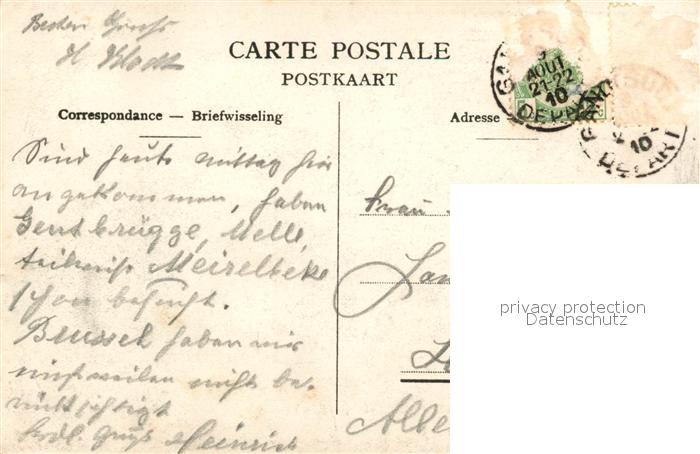 Besten Gruß
H
CARTE POSTALE
POSTKAART
Correspondance — Briefwisseling
Adresse
AOUT
21-22
10
DEPART
10
DEPART
Sind heute mittag hier
angekommen, haben
Gentbrügge, Melle,
teilweise Meirelbeke
schon besucht.
Brüssel haben wir
einstweilen nicht be-
rücksichtigt
Frdl. Gruß Heinrich
Frau
privacy protection
Datenschutz